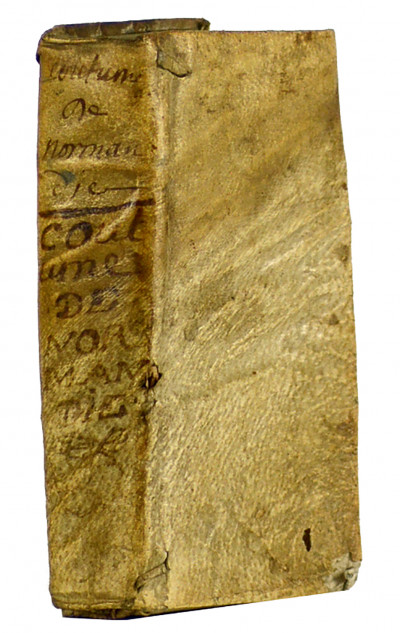 Coutume
De
Norman
die
COUT
umes
DE
NOR
MAN
DIE